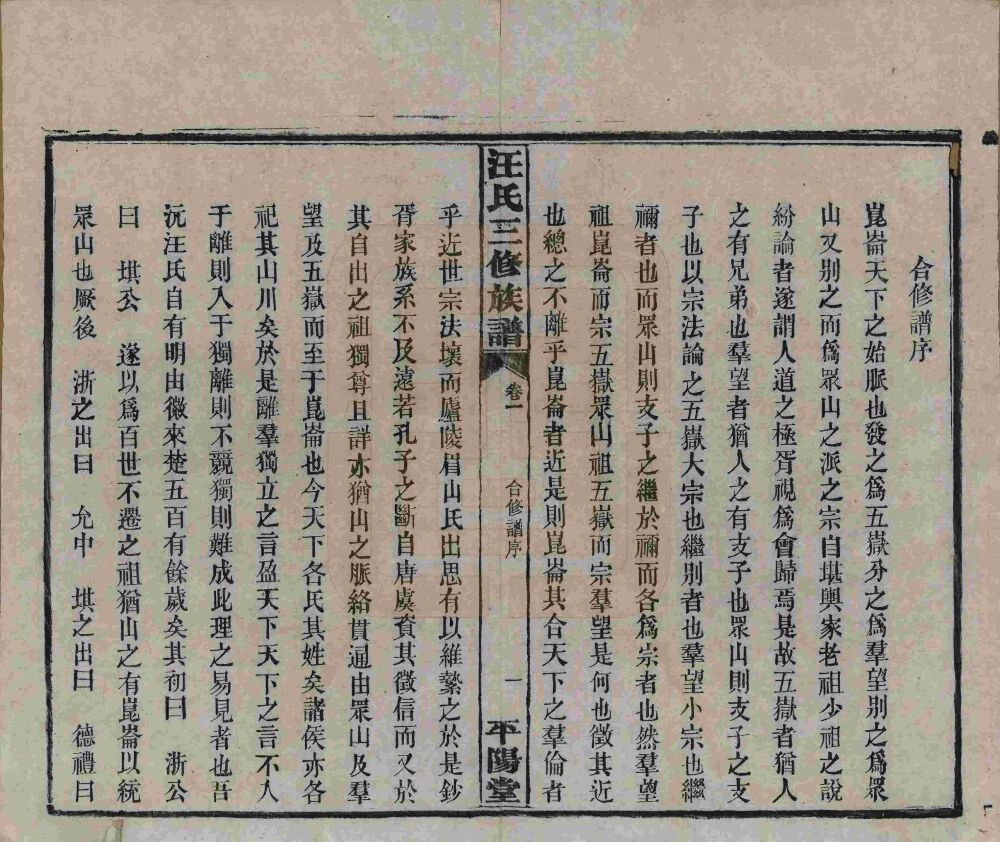 合修譜序
崑崙天下之始脈也發之爲五嶽分之爲羣望別之爲眾
山又別之而爲眾山之派之宗自堪輿家老祖少祖之說
紛論者遂謂人道之極胥視爲會歸焉是故五嶽者猶人
之有兄弟也羣望者猶人之有支子也眾山則支子之支
子也以宗法論之五嶽大宗也繼別者也羣望小宗也繼
禰者也而眾山則支子之繼於禰而各爲宗者也然羣望
祖崑崙而宗五嶽眾山祖五嶽而宗羣望是何也徵其近
也總之不離乎崑崙者近是則崑崙其合天下之羣倫者
汪氏三修族譜
卷一
合修譜序
一
平陽堂
乎近世宗法壞而廬陵眉山氏出思有以維繫之於是鈔
胥家族系不及遠若孔子之斷自唐虞資其徵信而又於
其自出之祖獨尊且詳亦猶山之脈絡貫通由眾山及羣
望及五嶽而至于崑崙也今天下各氏其姓矣諸侯亦各
祀其山川矣於是離羣獨立之言盈天下天下之言不入
于離則入于獨離則不競獨則難成此理之易見者也吾
沅汪氏自有明由徽來楚五百有餘歲矣其初曰　浙公
曰　堪公　遂以爲百世不遷之祖猶山之有崑崙以統
眾山也厥後　浙之出曰　允中　堪之出曰　德禮曰